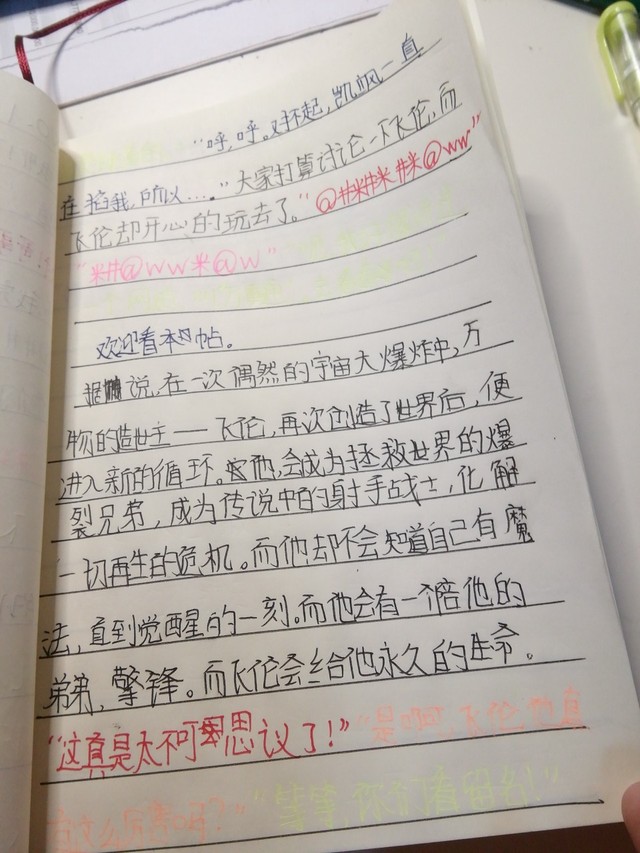 “呼，呼。对不起，凯飒一直
在掐我，所以……”大家打算讨论一下飞伦，而
飞伦却开心的玩去了。“@#米#米#米@ww”
“米#@ww米@w”
欢迎看本帖。
据说，在一次偶然的宇宙大爆炸中，万
物的造世主——飞伦，再次创造了世界后，便
进入新的循环。他会成为拯救世界的爆
裂兄弟，成为传说中的射手战士，化解
一切再生的危机。而他却不会知道自己有魔
法，直到觉醒的一刻。而他会有一个陪他的
弟弟，擎锋。而飞伦会给他永久的生命。
“这真是太不可思议了！”“是啊，飞伦，他真
有这么厉害吗？”“等等，你们看留名！”